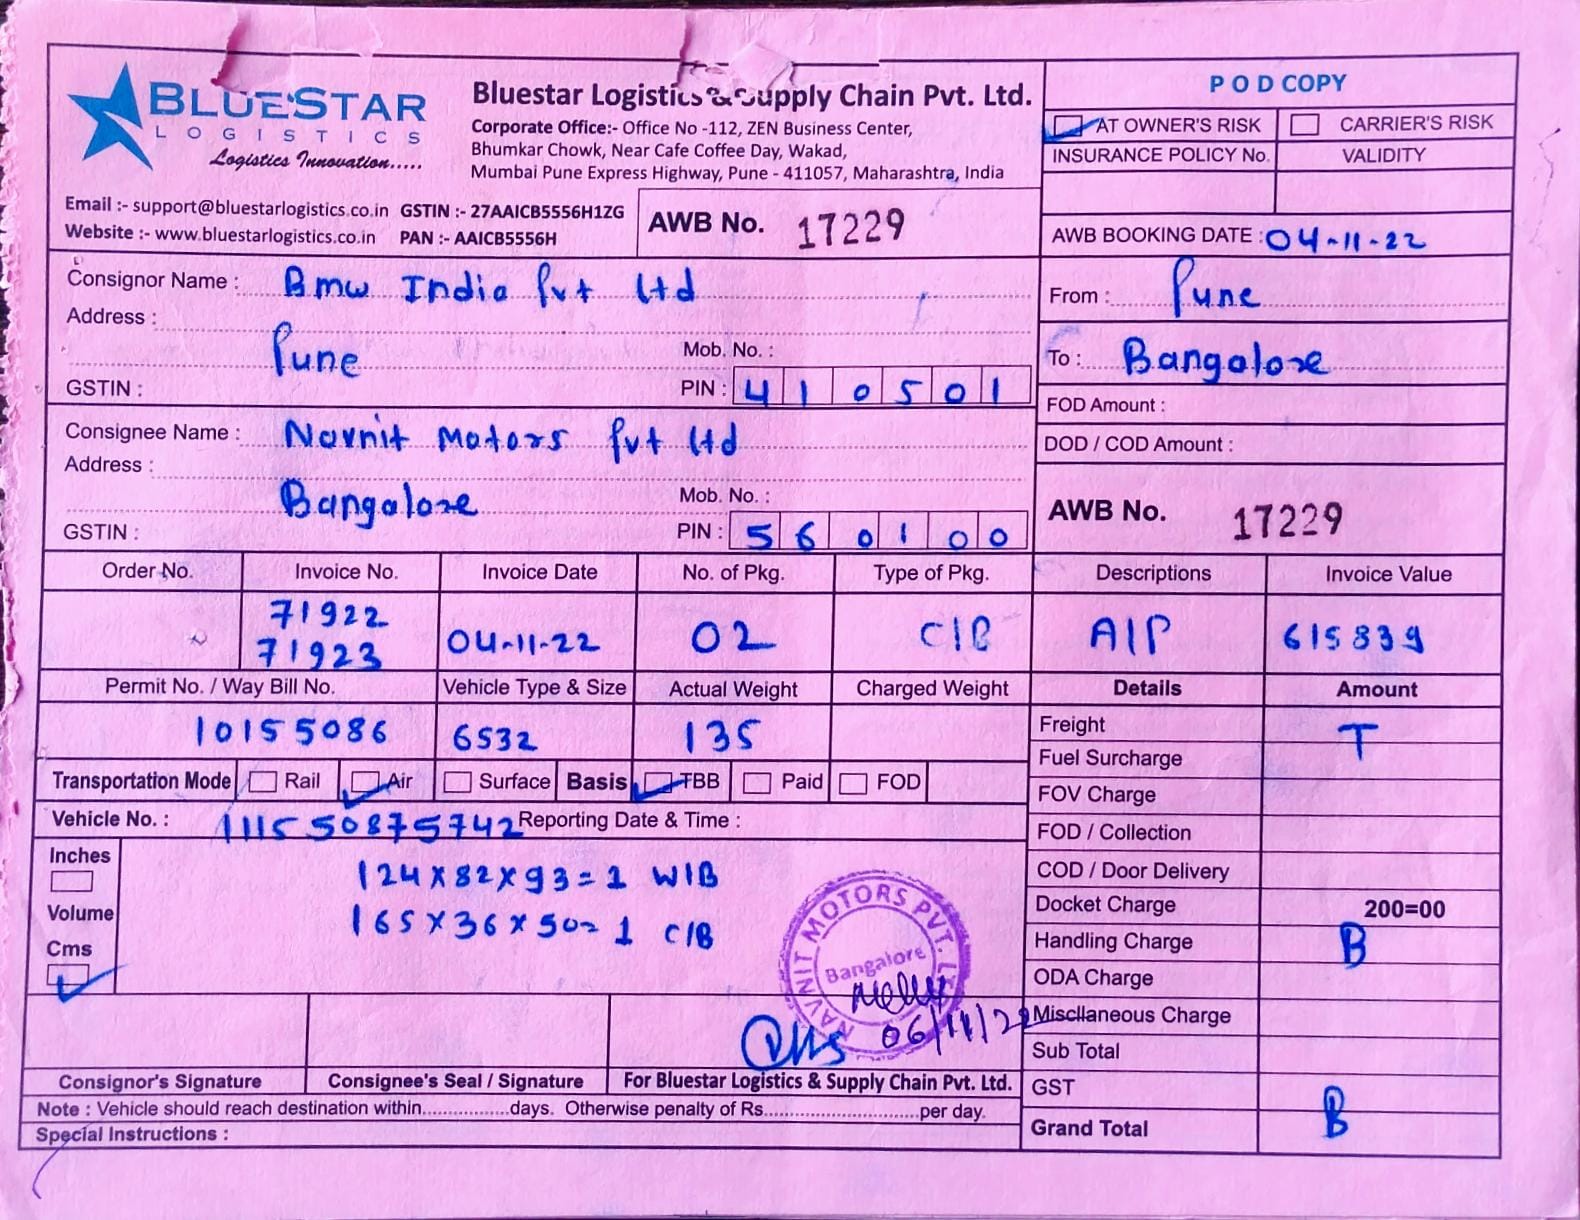 BLUESTAR
LOGISTICS
Logistics Innovation.....
Bluestar Logistics & Supply Chain Pvt. Ltd.
Corporate Office:- Office No -112, ZEN Business Center,
Bhumkar Chowk, Near Cafe Coffee Day, Wakad,
Mumbai Pune Express Highway, Pune - 411057, Maharashtra, India
Email :- support@bluestarlogistics.co.in GSTIN :- 27AAICB5556H1ZG
Website :- www.bluestarlogistics.co.in PAN :- AAICB5556H
AWB No. 17229
POD COPY
AT OWNER'S RISK CARRIER'S RISK
INSURANCE POLICY No. VALIDITY
AWB BOOKING DATE : 04-11-22
Consignor Name : Bmw India Pvt Ltd
Address :
Pune
Mob. No. :
GSTIN : PIN : 410501
From : Pune
To : Bangalore
FOD Amount :
DOD / COD Amount :
Consignee Name : Navnit Motors Pvt Ltd
Address :
Bangalore
Mob. No. :
GSTIN : PIN : 560100
AWB No. 17229
Order No. Invoice No. Invoice Date No. of Pkg. Type of Pkg. Descriptions Invoice Value
71922
71923 04-11-22 02 C/B A/P 615839
Permit No. / Way Bill No. Vehicle Type & Size Actual Weight Charged Weight Details Amount
10155086 6532 135
Freight T
Fuel Surcharge
Transportation Mode Rail Air Surface Basis TBB Paid FOD
FOV Charge
Vehicle No. : 111550875742 Reporting Date & Time :
FOD / Collection
Inches
Volume
Cms
124x82x93=1 W/B
165x36x50=1 C/B
COD / Door Delivery
Docket Charge 200=00
Handling Charge B
ODA Charge
Miscllaneous Charge
Sub Total
GST
Grand Total B
NAVNIT MOTORS PVT. LTD
Bangalore
06/11/22
Consignor's Signature Consignee's Seal / Signature For Bluestar Logistics & Supply Chain Pvt. Ltd.
Note : Vehicle should reach destination within.................days. Otherwise penalty of Rs...............................per day.
Special Instructions :